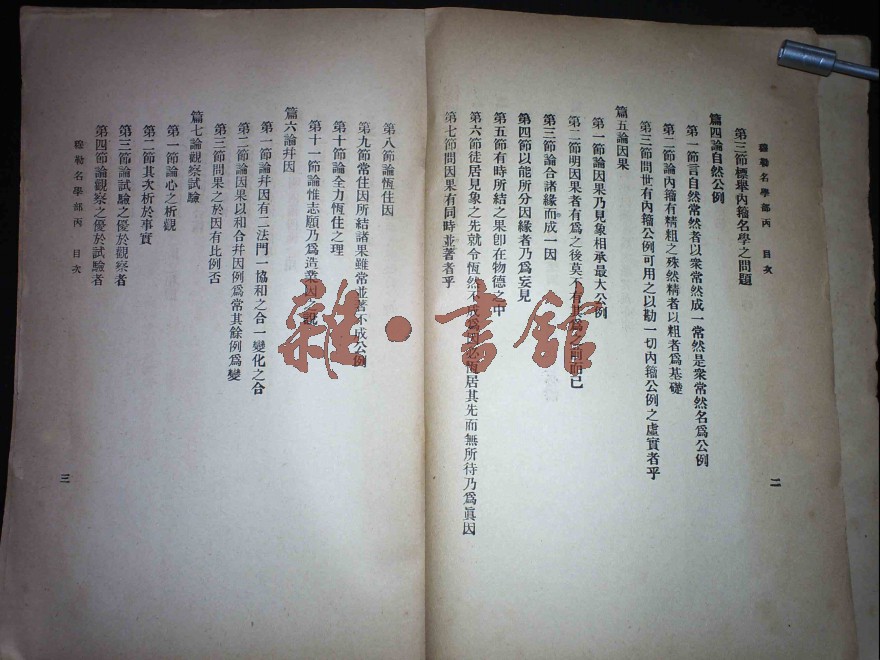 穆勒名學部丙　目次
第三節標舉內籀名學之問題
篇四論自然公例
第一節言自然常然者以衆常然成一常然是衆常然名爲公例
第二節論內籀有精粗之殊然精者以粗者爲基礎
第三節問世有內籀公例可用之以勘一切內籀公例之虛實者乎
篇五論因果
第一節論因果乃見象相承最大公例
第二節明因果者有爲之後莫不有其爲之前而已
第三節論合諸緣而成一因
第四節以能所分因緣者乃爲妄見
第五節有時所結之果卽在物德之中
第六節徒居見象之先就令恆然不成公例必恆居其先而無所待乃爲眞因
第七節問因果有同時並著者乎
二
第八節論恆住因
第九節常住因所結諸果雖常並著不成公例
第十節論全力恆住之理
第十一節論惟志願乃爲造業因之說
篇六論幷因
第一節論幷因有二法門一協和之合一變化之合
第二節論因果以和合幷因例爲常其餘例爲變
第三節問果之於因有比例否
篇七論觀察試驗
第一節論心之析觀
第二節其次析於事實
第三節論試驗之優於觀察者
第四節論觀察之優於試驗者
穆勒名學部丙　目次
三
雜·書館